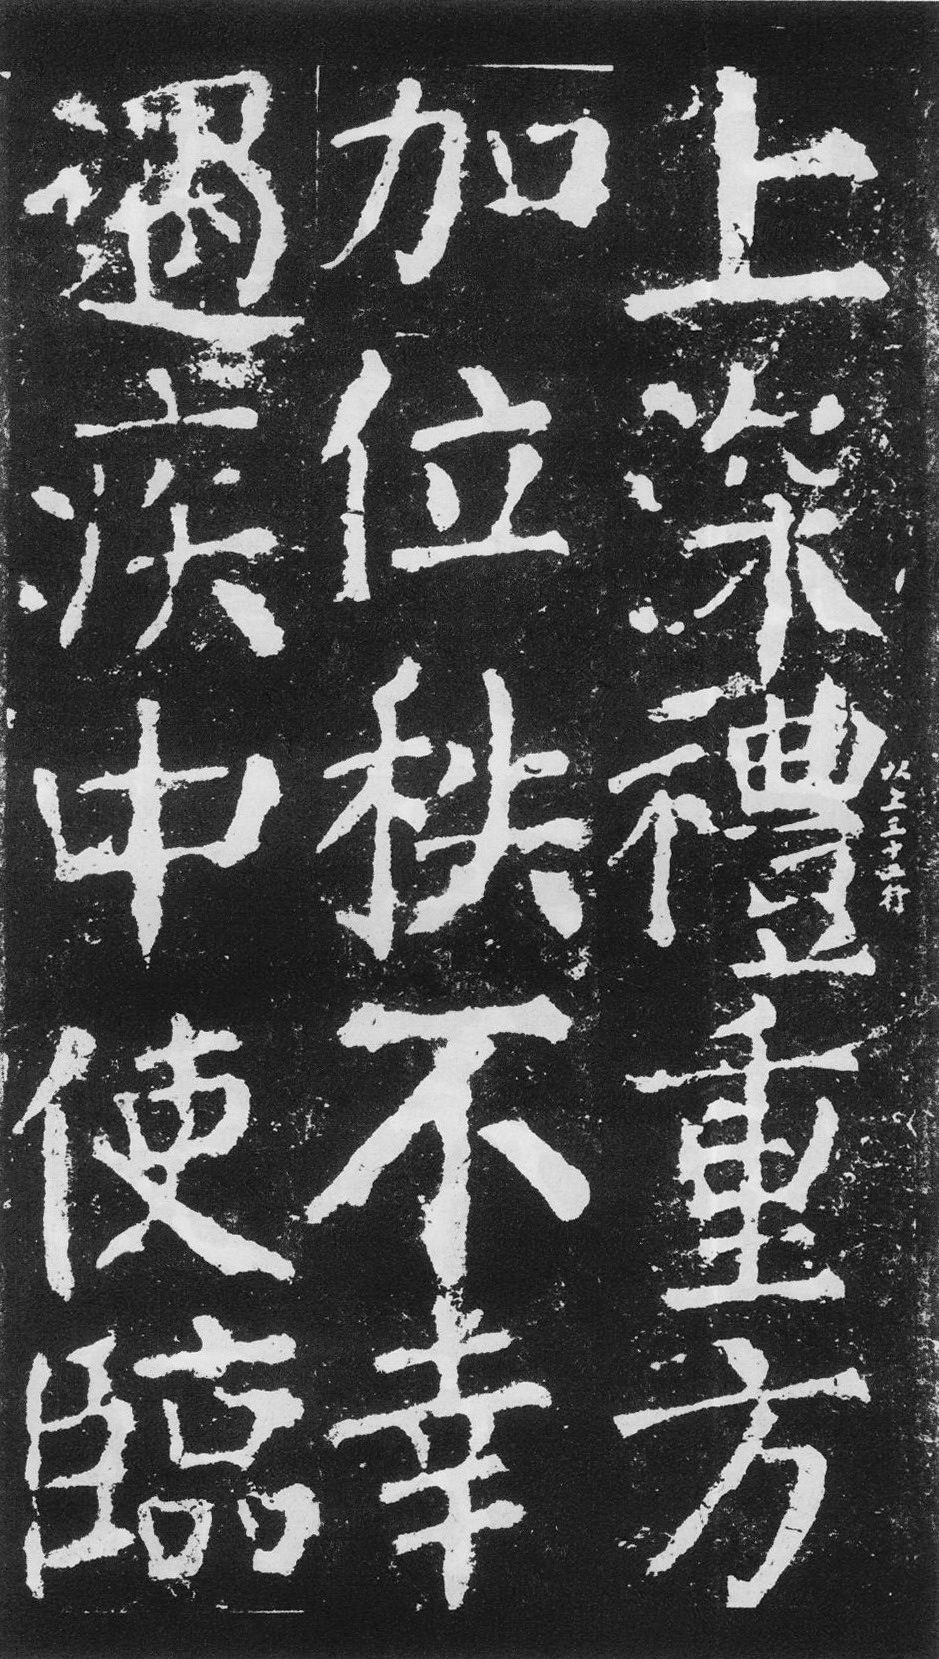 上深禮重方
加位秩不幸
遇疾中使臨
以上三十五行